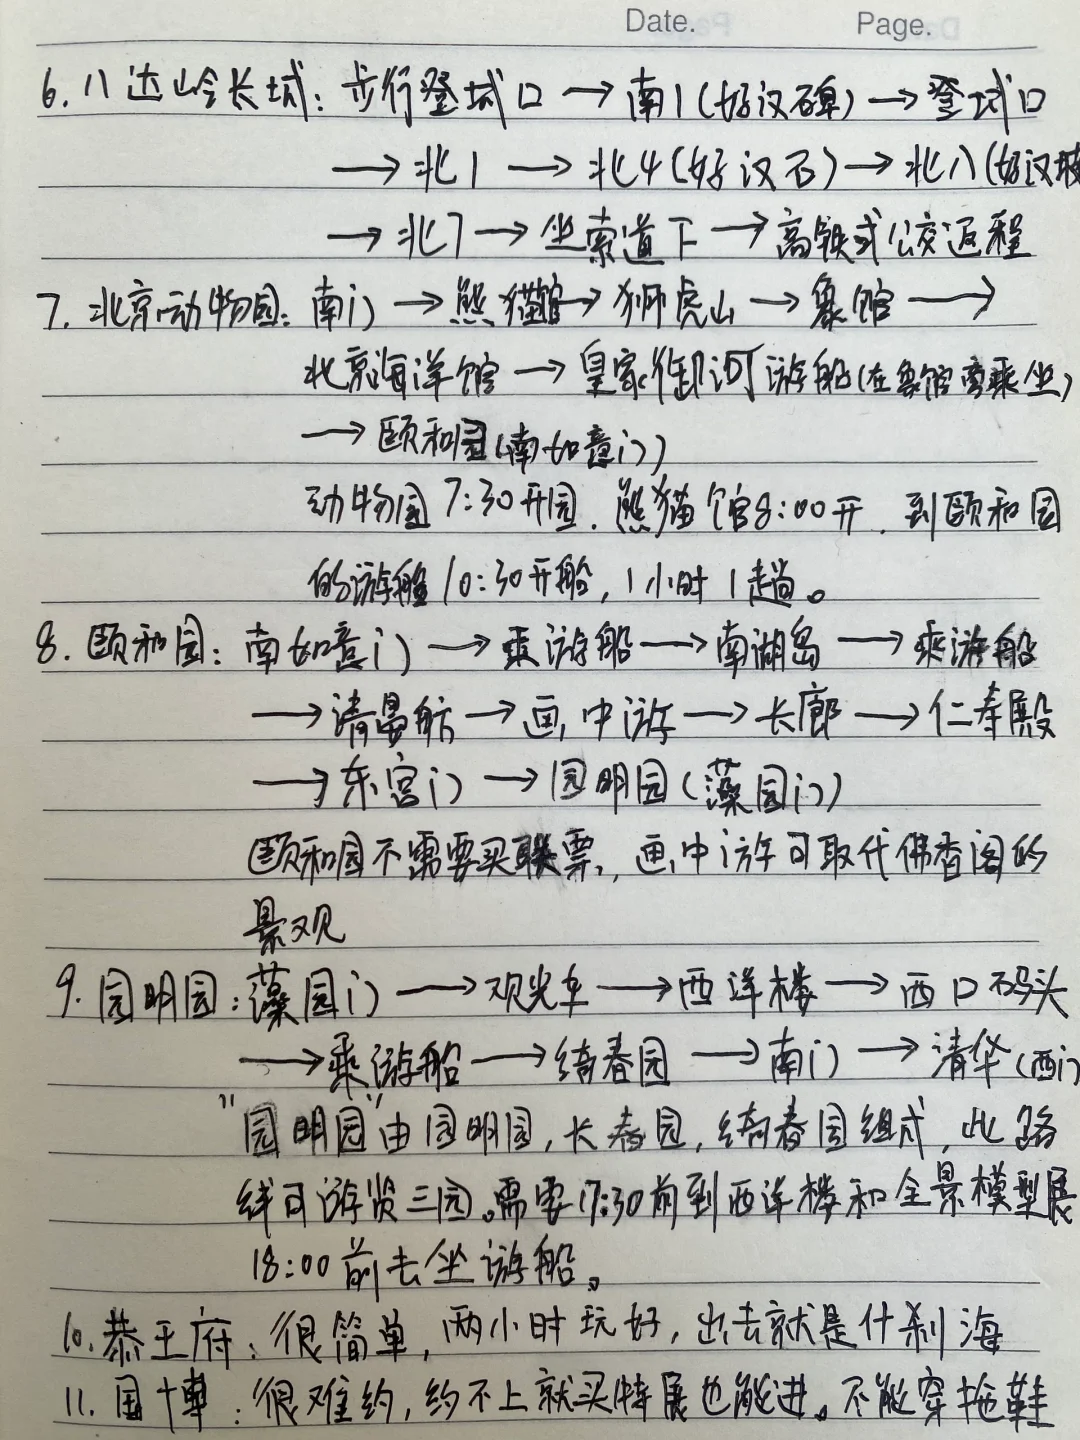 Date. Page.
6. 八达岭长城：步行登城口 → 南1(好汉碑) → 登城口
→ 北1 → 北4(好汉石) → 北八(好汉坡
→ 北7 → 坐索道下 → 高铁或公交返程
7. 北京动物园：南门 → 熊猫馆 → 狮虎山 → 象馆 →
北京海洋馆 → 皇家御河游船(在象馆旁乘坐)
→ 颐和园(南如意门)
动物园7:30开园．熊猫馆8:00开．到颐和园
的游船10:30开船，1小时1趟。
8. 颐和园：南如意门 → 乘游船 → 南湖岛 → 乘游船
→ 清晏舫 → 画中游 → 长廊 → 仁寿殿
→ 东宫门 → 园明园(藻园门)
颐和园不需要买联票，画中游可取代佛香阁的
景观
9. 园明园：藻园门 → 观光车 → 西洋楼 → 西口码头
→ 乘游船 → 绮春园 → 南门 → 清华(西门
"园明园"由园明园，长春园，绮春园组成，此路
线可游览三园。需要17:30前到西洋楼和全景模型展
18:00前去坐游船。
10. 恭王府：很简单，两小时玩好，出去就是什刹海
11. 国博：很难约，约不上就买特展也能进。不能穿拖鞋